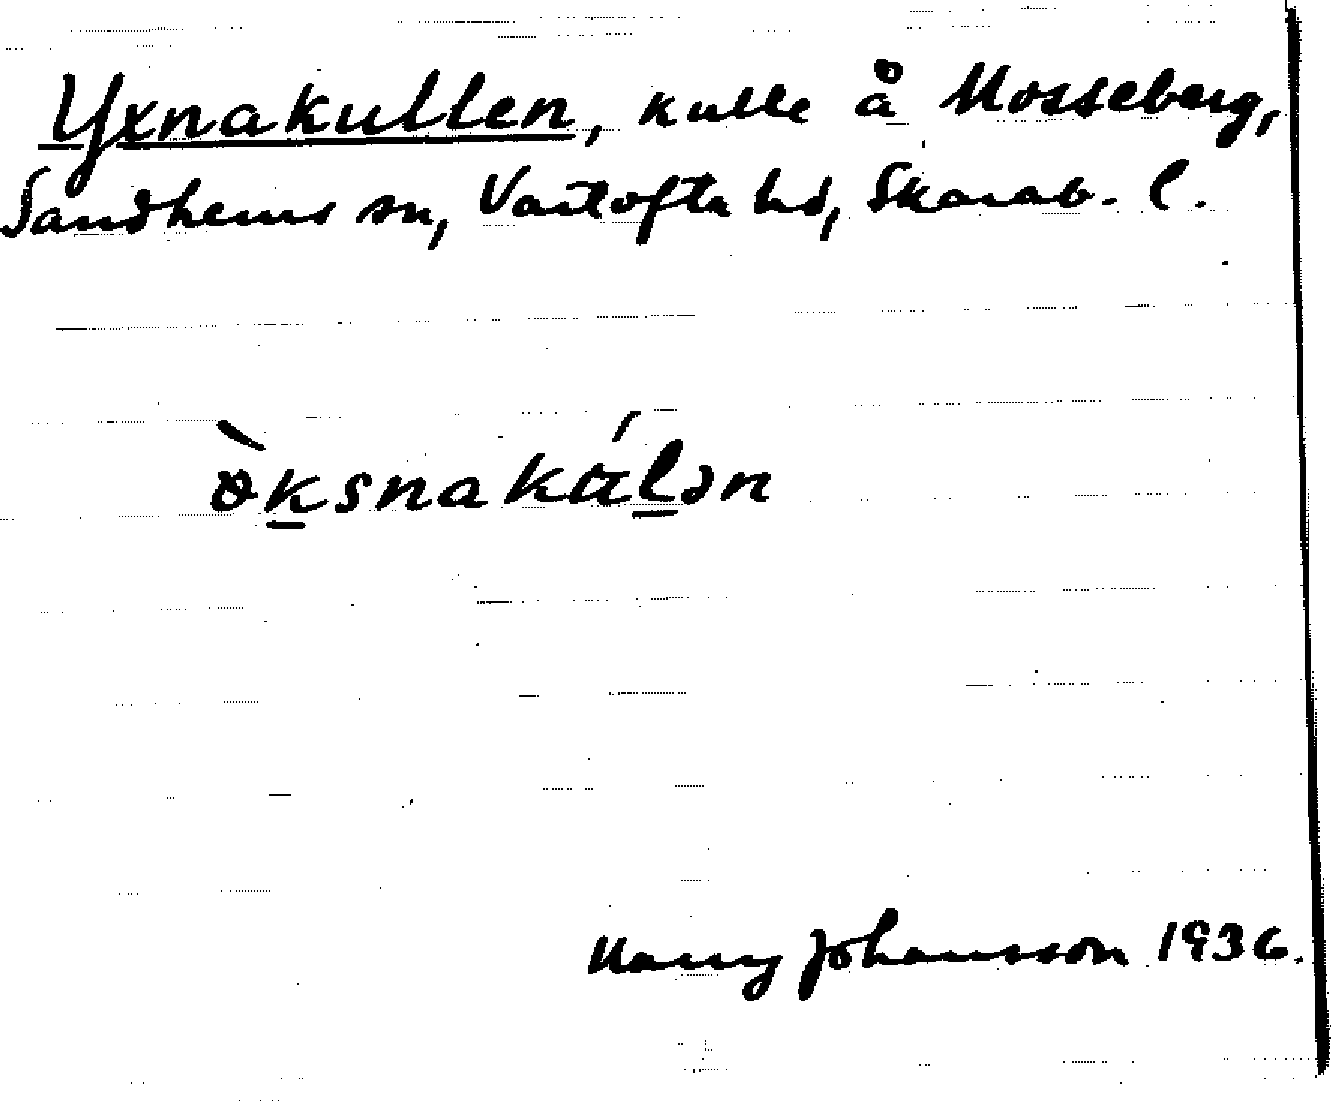 Yxnakullen, kulle å Mosseberg,
Sandhems sn, Vartofta hd, Skarab. l.
ö̀ksnakúlən
Harry Johansson 1936.